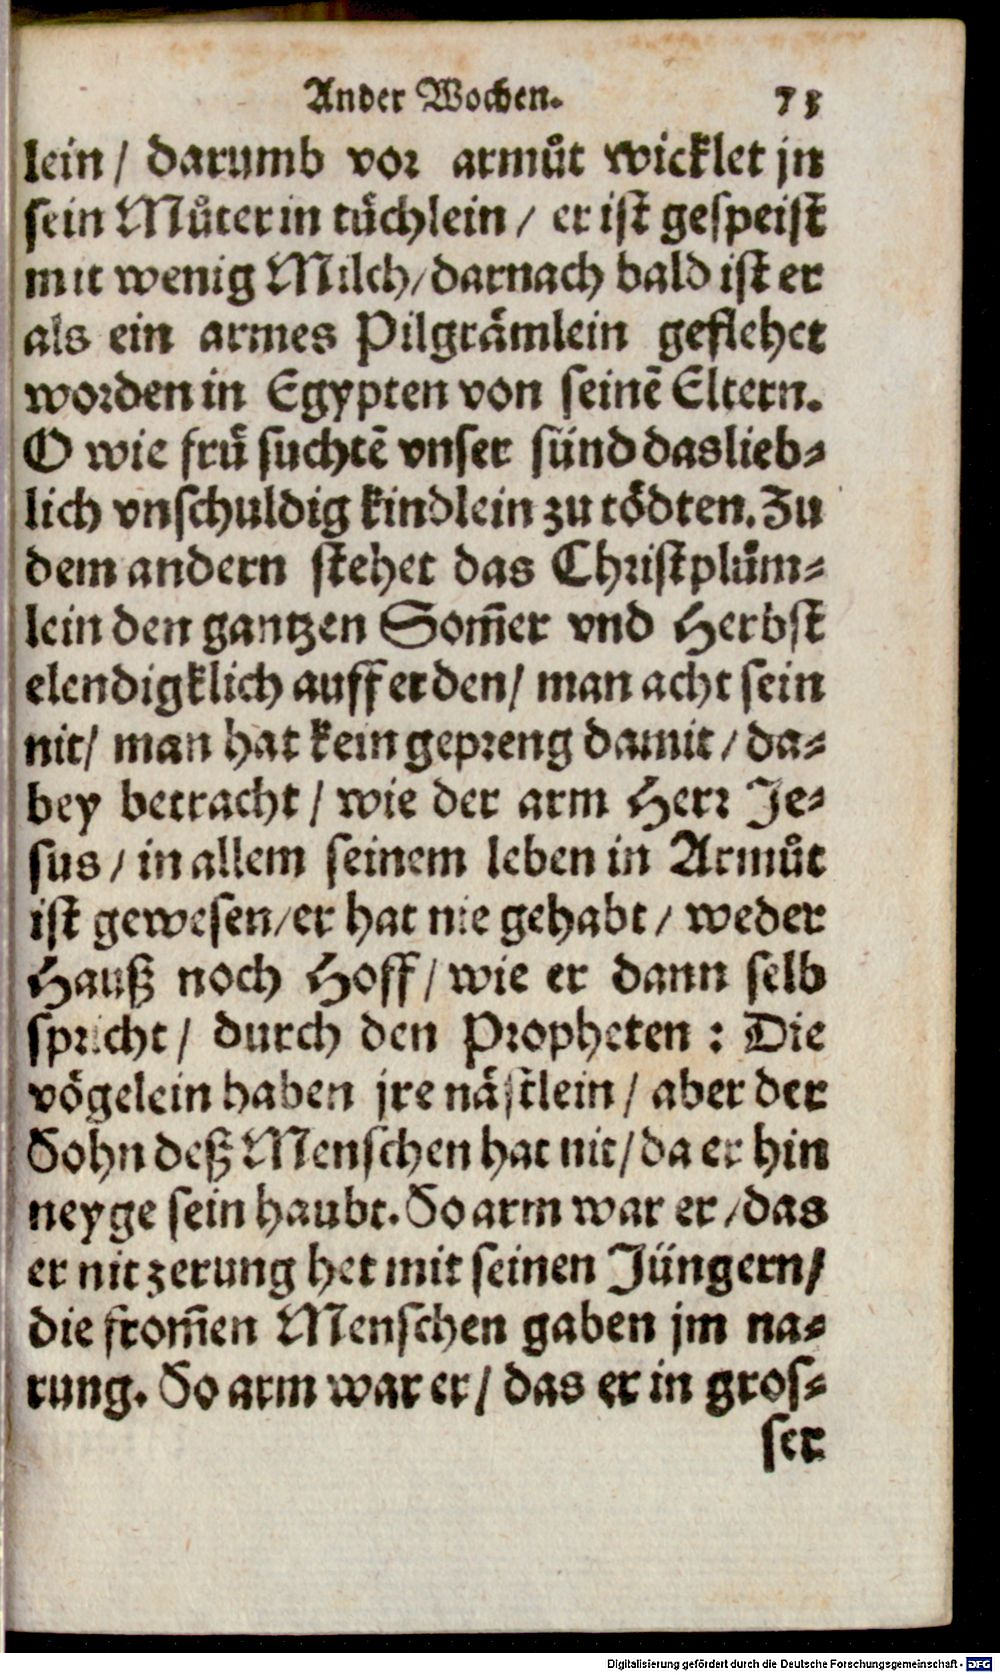 Ander Wochen. 73
lein / darumb vor armůt wicklet jn
sein Můter in tüchlein / er ist gespeist
mit wenig Milch / darnach bald ist er
als ein armes Pilgrämlein geflehet
worden in Egypten von seinē Eltern.
O wie frü suchtē vnser sünd das lieb-
lich vnschuldig kindlein zu tödten. Zu
dem andern stehet das Christplům-
lein den gantzen Som̄er vnd Herbst
elendigklich auff erden / man acht sein
nit / man hat kein gepreng damit / da-
bey betracht / wie der arm Herr Je-
sus / in allem seinem leben in Armůt
ist gewesen / er hat nie gehabt / weder
Hauß noch Hoff / wie er dann selb
spricht / durch den Propheten : Die
vögelein haben jre nästlein / aber der
Sohn deß Menschen hat nit / da er hin
neyge sein haubt. So arm war er / das
er nit zerung het mit seinen Jüngern /
die from̄en Menschen gaben jm na-
rung. So arm war er / das er in gros-
ser
Digitalisierung gefördert durch die Deutsche Forschungsgemeinschaft - DFG